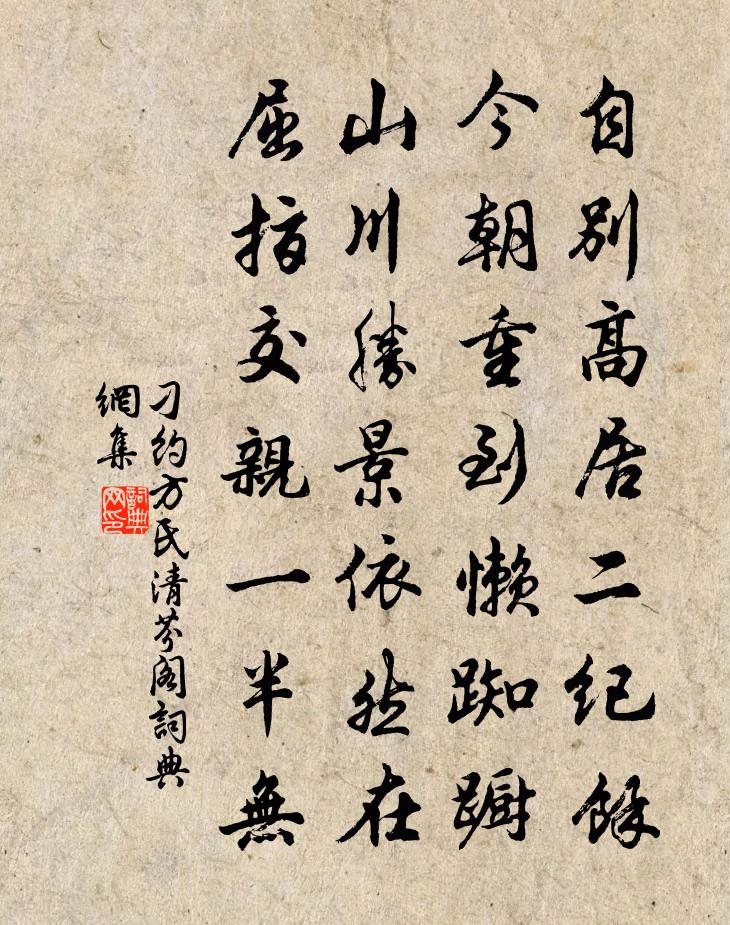 自別高居二紀餘
今朝重到懶踟躕
山川勝景依然在
屈指交親一半無
刁約方氏清芬閣詞典
網集
詞典
网印